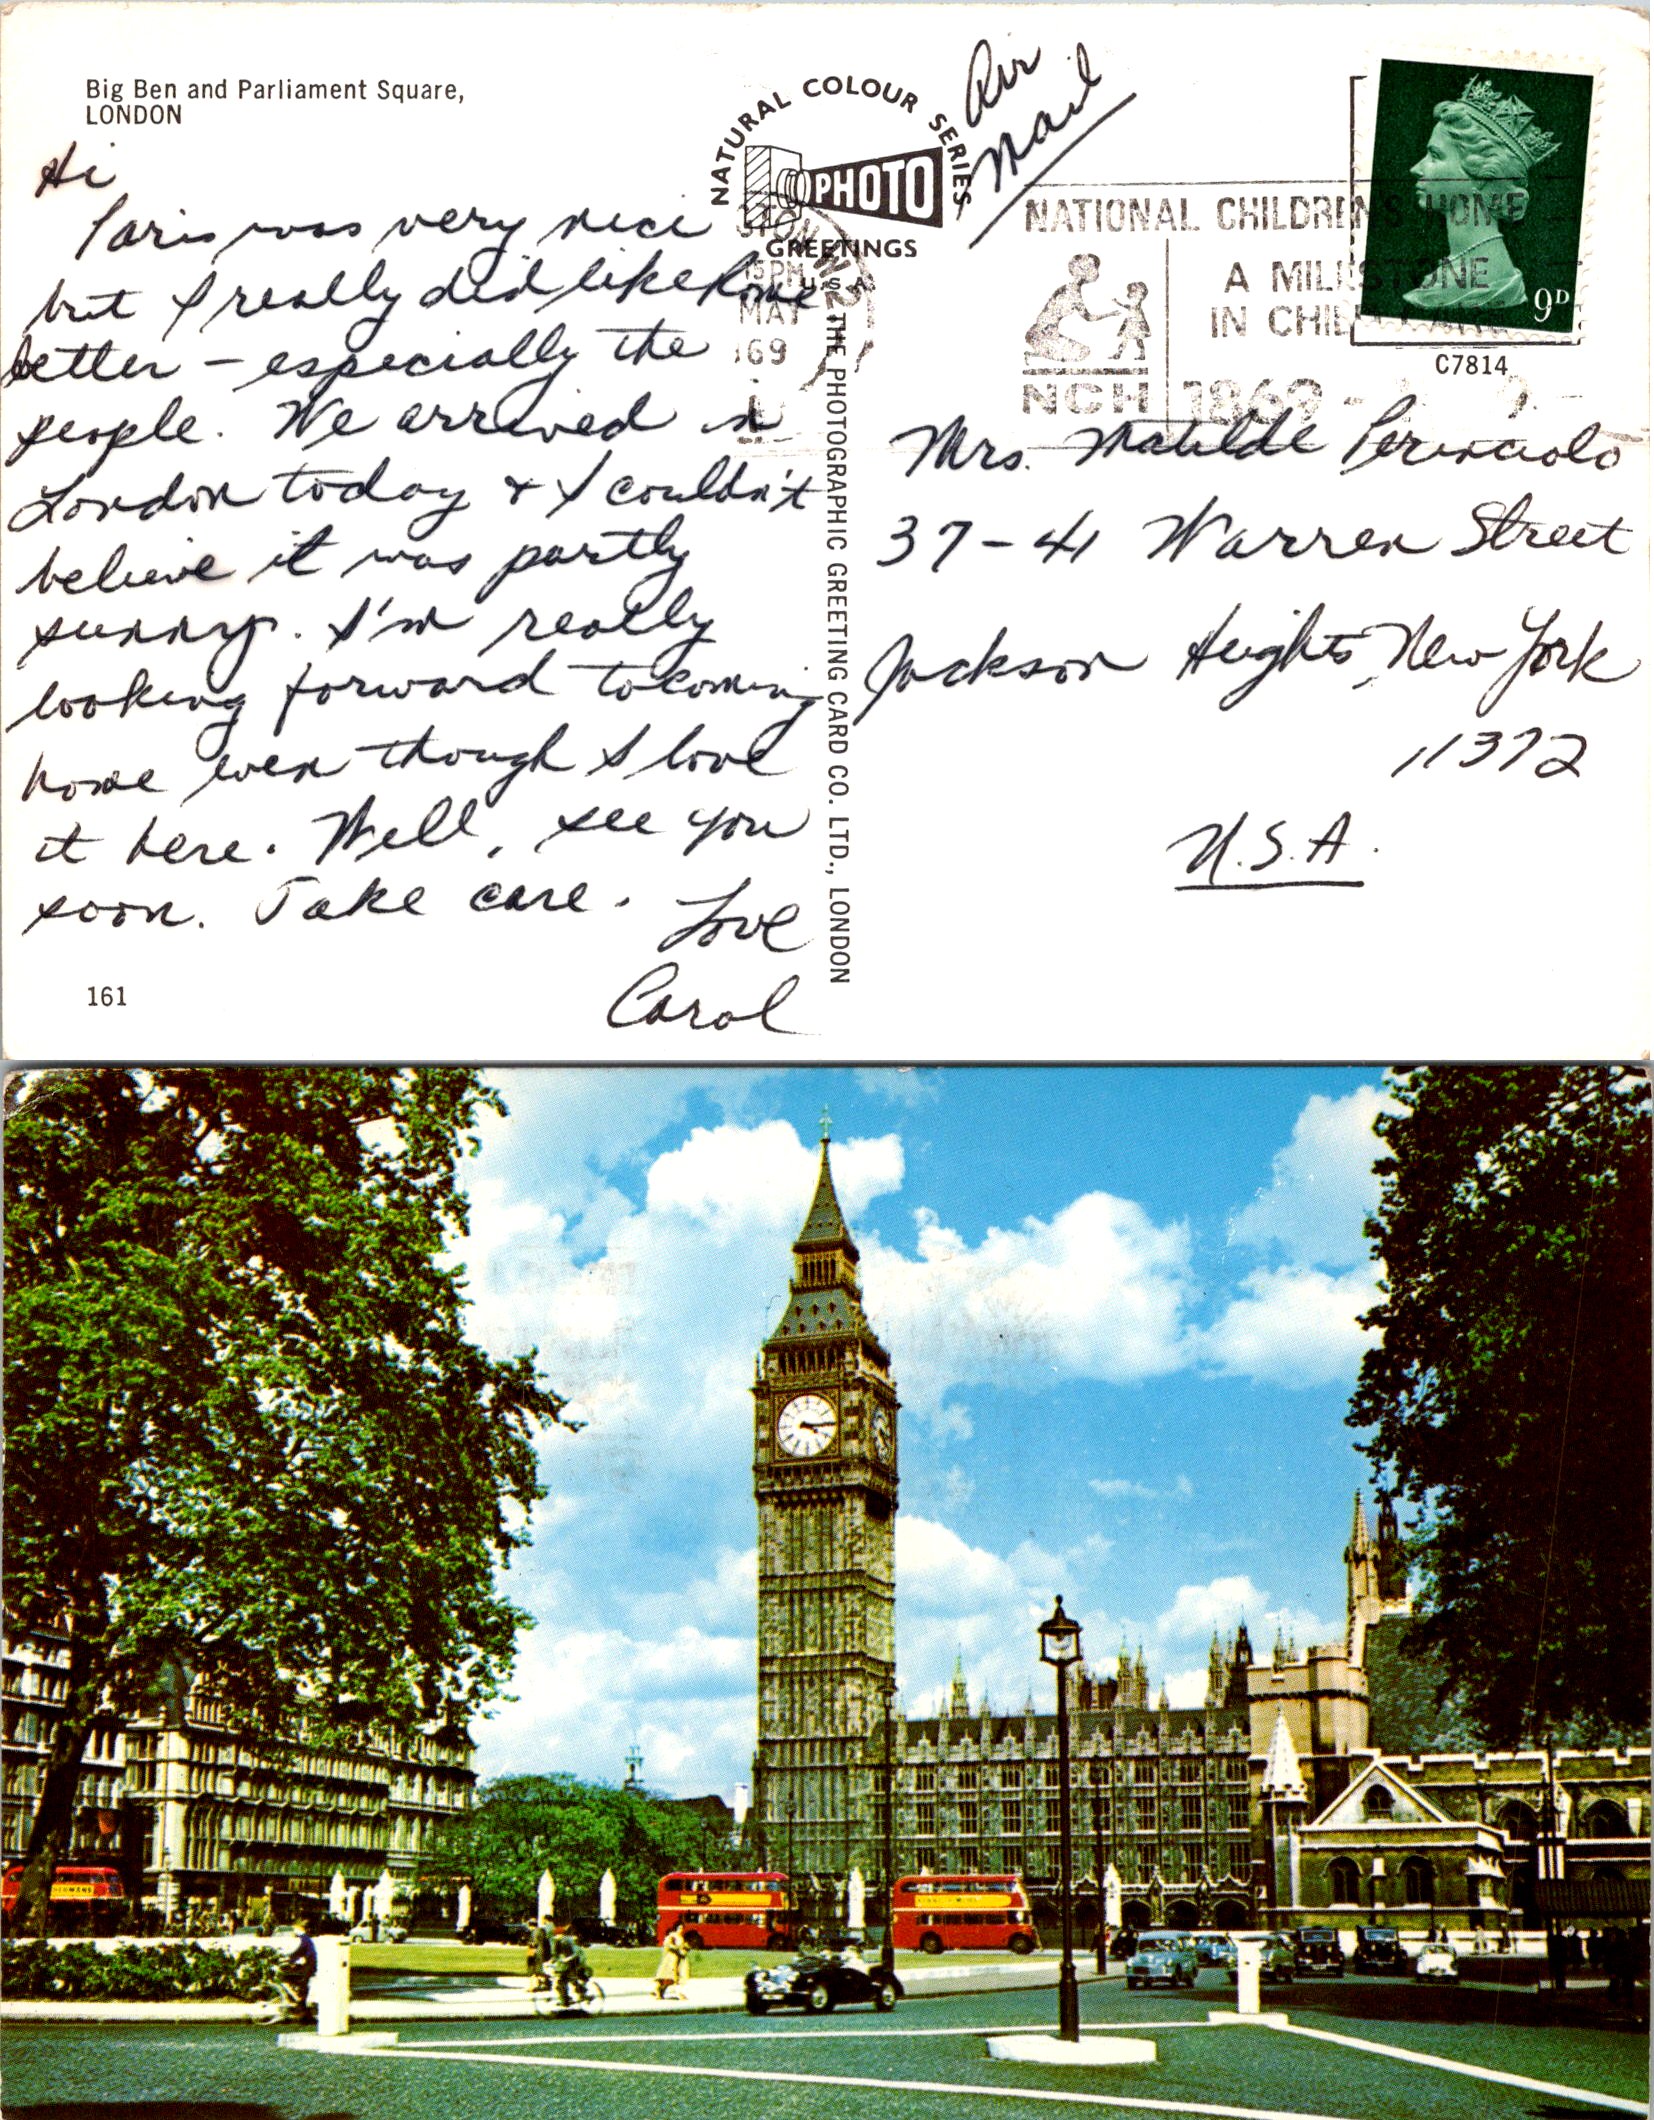 Big Ben and Parliament Square,
LONDON
Hi
Paris was very nice
but I really did like Rome
better - especially the
people. We arrived in
London today & I couldn't
believe it was partly
sunny. I'm really
looking forward to coming
home even though I love
it here. Well, see you
soon. Take care.
Love
Carol
161
NATURAL COLOUR SERIES
PHOTO
GREETINGS
U.S.A.
THE PHOTOGRAPHIC GREETING CARD CO. LTD., LONDON
Air
Mail
15 PM
MAY
69
NATIONAL CHILDREN'S HOME
A MILESTONE
IN CHILD CARE
NCH
1869 -
9D
C7814
Mrs. Matilde
37-41 Warren Street
Jackson Heights, New York
11372
U.S.A.